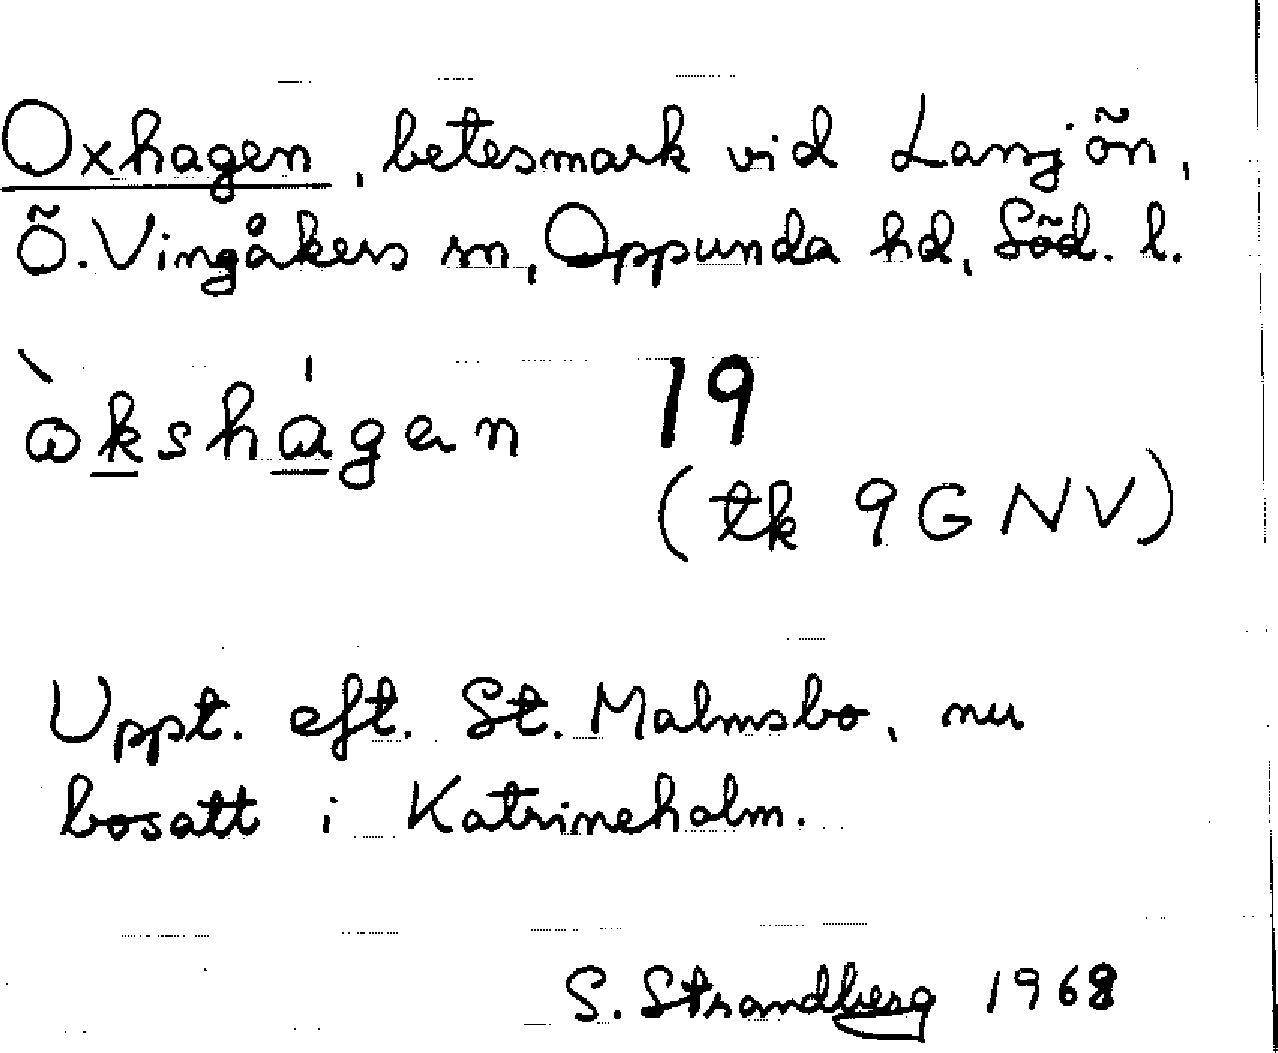 Oxhagen, betesmark vid Lansjön,
Ö. Vingåkers sn, Oppunda hd, Söd. l.
àkshágen 19
(tk 9G NV)
Uppt. eft. St. Malmsbo, nu
bosatt i Katrineholm.
S. Strandberg 1968